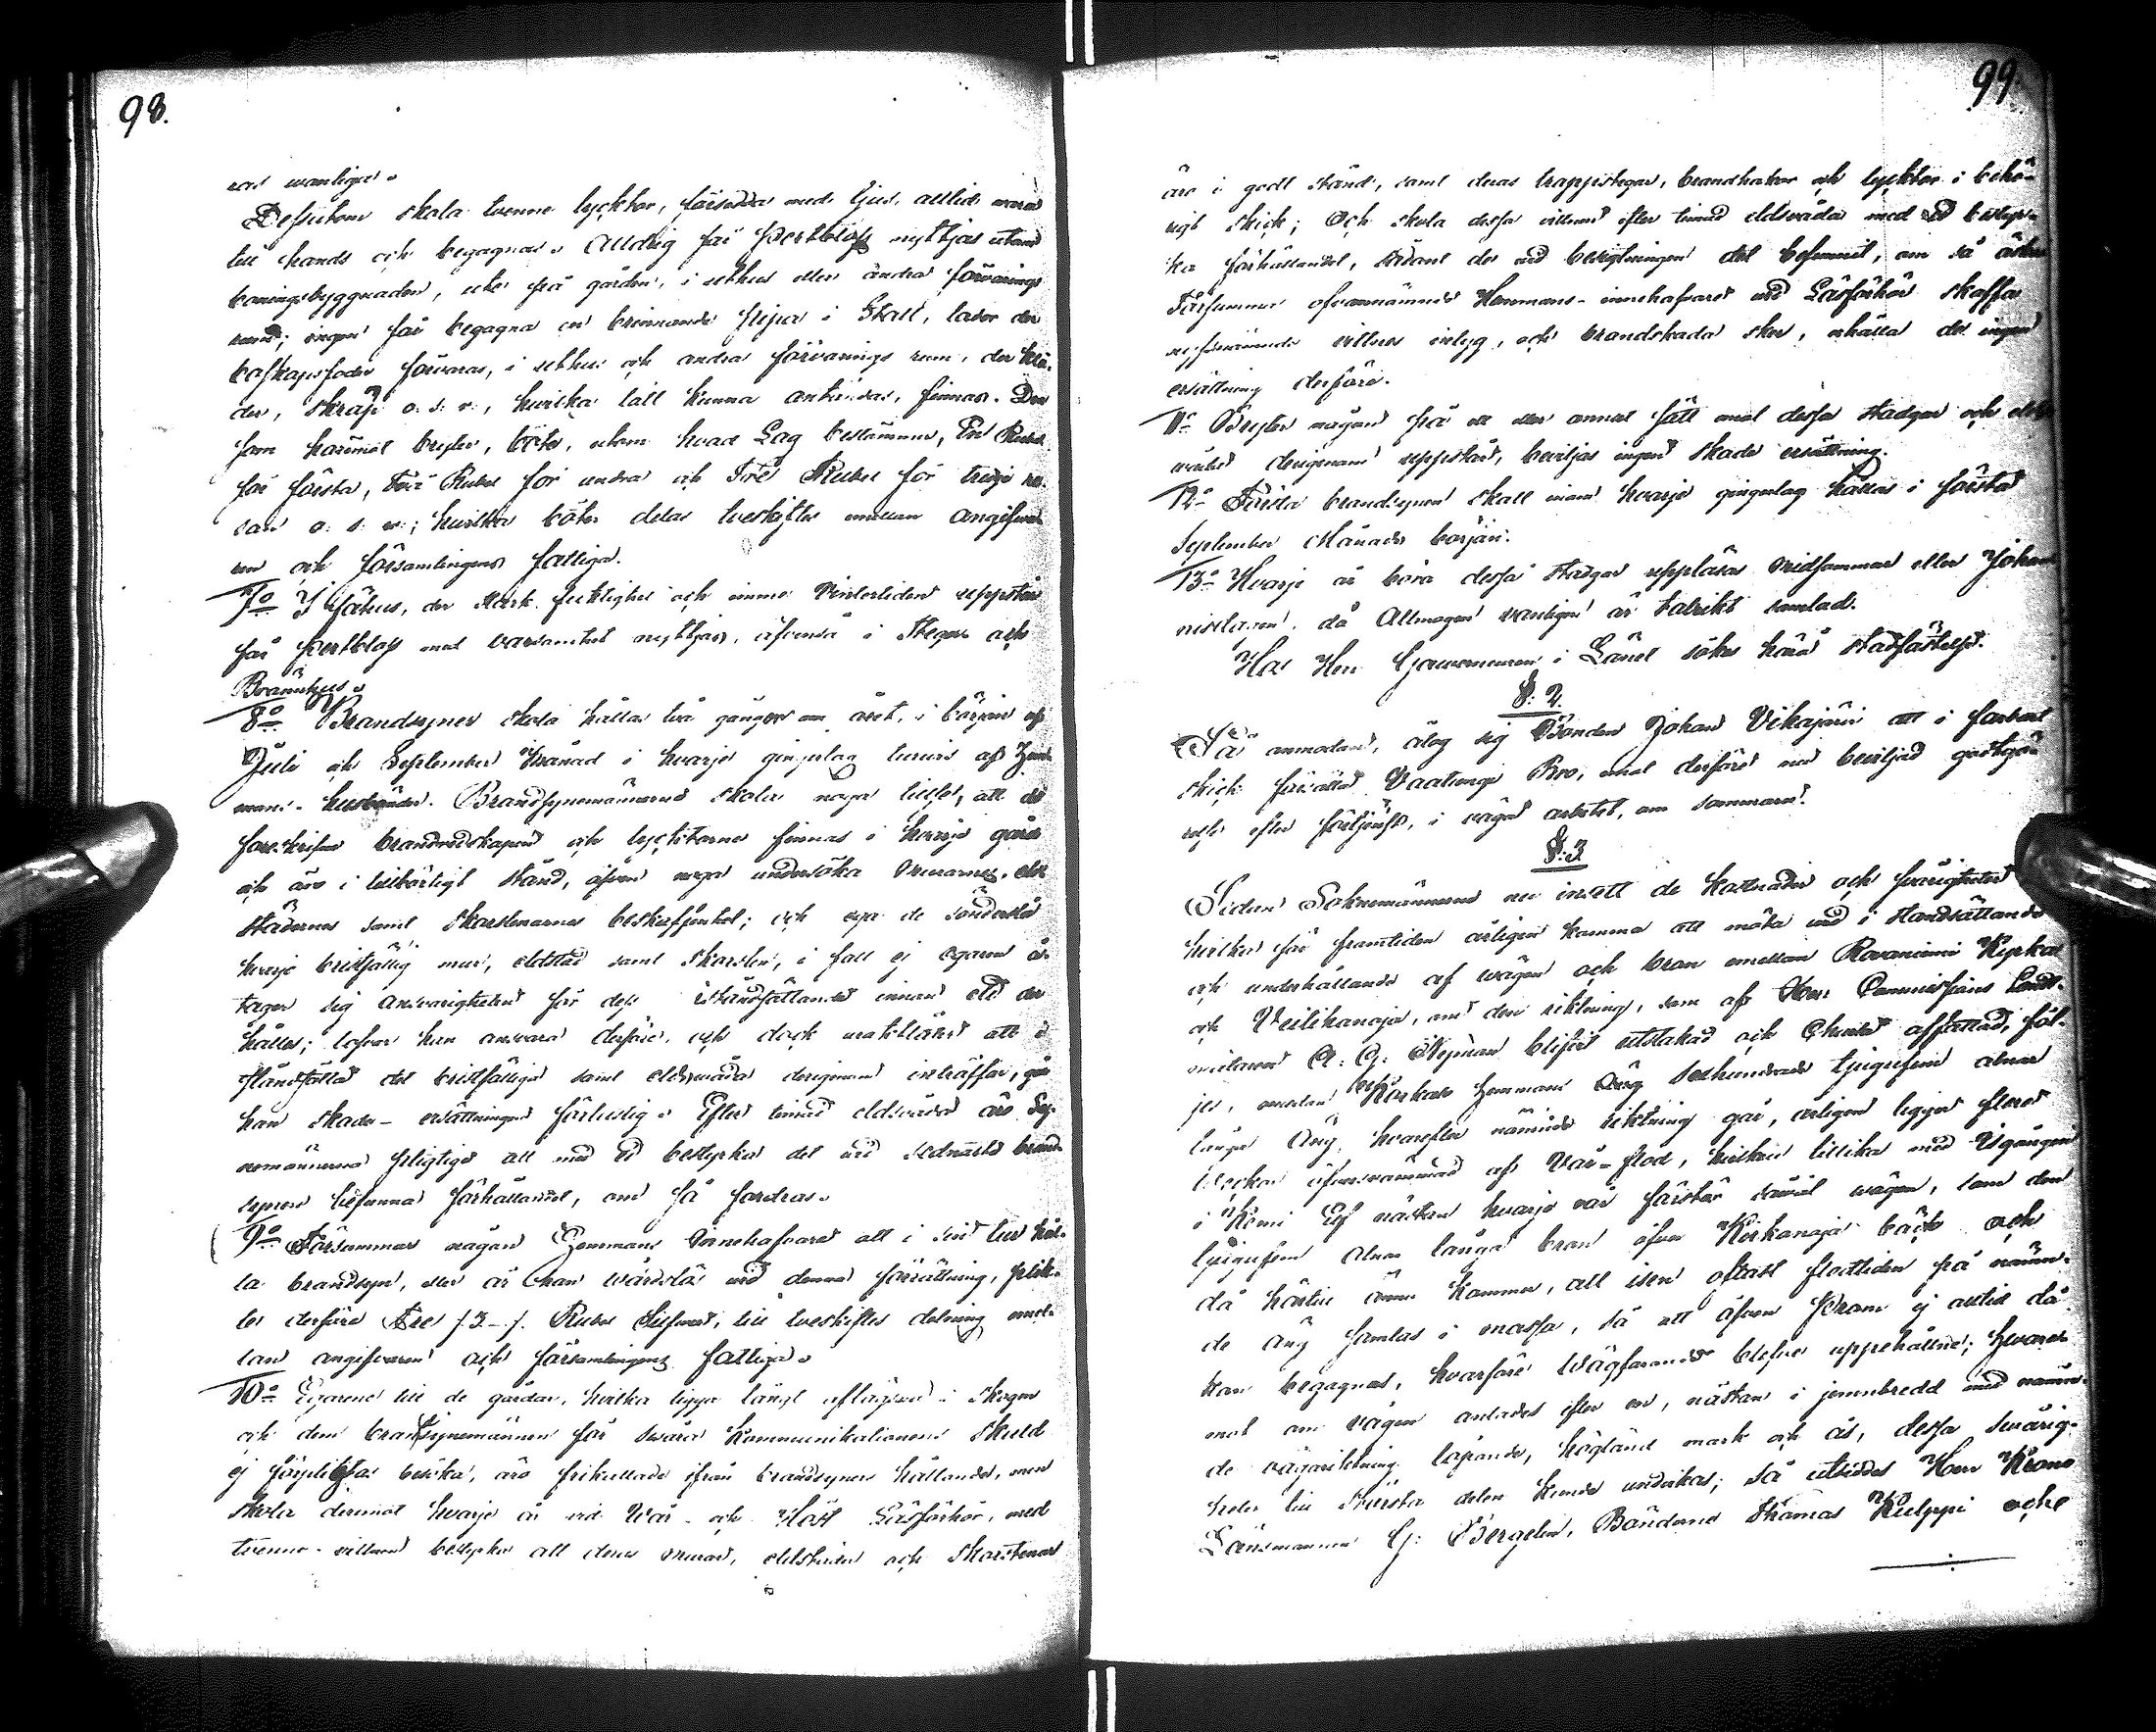 98.
wanliga.
Dessutom skola tvenne lycktor, försedda med ljus, alltid vara
till hands och begagnas. Alldrig får pertbloss nyttjas utom
boningsbyggnaden, ute på gården, i uthus eller andra förvarings
rum; ingen får begagna en brinnande pipa i Stall, lador der
boskapsfoder förvaras, i uthus och andra förvarings rum, der klä-
der, skräp o. s. v., hvilka lätt kunna antändas, finnas. Den
som häremot bryter, böte, utom hvad Lag bestämmer, En Rubel
för första, Två Rubel för andra och Tre Rubel för tredje re-
san o. s. v.; hvilka böter delas tveskiftes emellan angifva-
ren och församlingens fattiga.
7:o I fähus, der stark fuktighet och imma vintertiden uppstår
får pertbloss med varsamhet nyttjas, äfvenså i Stegers och
Brännhus.
8:o Brandsyner skola hållas två gånger om året, i början af
Juli och September Månad i hvarje gingerlag turvis af Hem-
mans-husbönder. Brandsynemännerne skola noga tillse, att de
föreskrifne brandredskapen och lycktorne finnas i hvarje gård
och äro i tillbörligt stånd, äfven noga undersöka murarnes, eld-
städernes samt skorstenarnes beskaffenhet; och ega de sönderslå
hvarje bristfällig mur, eldstad samt skorsten, i fall ej egaren å-
tager sig ansvarigheten för dess iståndsättande innan eld der
hålles; lofvar han ansvara derföre, och dock uraktlåter att i
ståndsätta det bristfälliga samt eldsvåda derigenom inträffar, går
han skade-ersättningen förlustig. Efter timad eldsvåda äro Sy-
nemännerna pligtige att med ed bestyrka det vid sednaste brand-
synen befunna förhållandet, om så fordras.
9:o Försummar någon Hemmans Innehafvare att i sin tur hål-
la brandsyn, eller är han vårdslös vid denna förrättning, plik-
te derföre Tre /: 3 :/ Rubel Silfver, till tveskiftes delning emel-
lan angifvaren och församlingens fattiga.
10:o Egarene till de gårdar, hvilka ligga långt aflägsna i skogen
och dem brandsynemännen för svåra Kommunikationens skuld
ej förpliktas besöka, äro frikallade ifrån brandsyners hållande, men
skola deremot hvarje år vid Vår- och Höst Läsförhör, med
tvenne vittnen bestyrka att deras murar, eldstäder och skorstenar
99.
äro i godt stånd, samt deras trappstegar, brandhakar och lycktor i behö-
rigt skick; Och skola dessa vittnen efter timad eldsvåda med ed bestyr-
ka förhållandet, sådant de vid besigtningen det befunnit, om så äskas
Försummar ofvannämnde Hemmans-innehafvare vid Läsförhör skaffa
nyssnämnde vittnes intyg, och brandskada sker, erhålla de ingen
ersättning derföre.
11:o Bryter någon på ett eller annat sätt mot dessa stadgar och elds
våda derigenom uppstår, beviljas ingen skade ersättning.
12:o Första brandsynen skall inom hvarje gingerlag hållas i första
September Månads början.
13:o Hvarje år böra dessa stadgar uppläsas Midsommar eller Johan
nisdagen, då Allmogen vanligen är talrikt samlad.
Hos Herr Gouverneuren i Länet sökes härå stadfästelse.
§: 2.
På anmodan, åtog sig Bonden Johan Vikajärvi att i farbart
skick försätta Vaattunge Bro, mot derföre med beviljad godtgö-
relse efter förtjenst, i vägarbetet, om sommaren.
§: 3.
Sedan Soknemännerne nu insett de kostnader och svårigheter
hvilka för framtiden årligen komma att möta vid i ståndsättande
och underhållande af vägen och bron emellan Rovaniemi Kyrka
och Veitikanoja, om den riktning, som af Herr Commissions Landt-
mätaren A: G: Nyman blifvit utstakad och Chartat affattad, föl-
jes, emedan Korkalo hemmans Äng Sexhundrade tjugufem alnar
långa Äng, hvarefter nämnde riktning går, årligen ligger flere
Veckor öfversvämmad af Vår-flod, hvilken tillika med Isgången
i Kemi Elf nästan hvarje vår förstör såväl vägen, som den
tjugufem alnar långa bron öfver Korkanoja bäck och
då härtill ännu kommer, att isen oftast flodtiden på nämn-
de äng samlas i massa, så att äfven Pram ej alltid då
kan begagnas, hvarföre Vägfarande blefve uppehållne; hvaremot
om vägen anlades efter en, nästan i jemnbredd med nämn-
de vägarikning löpande, högländ mark och ås, dessa svårig-
heter till största delen kunde undvikas; så utsåddes Herr Krono
Länsmannen G: Bergelin, Bönderne Thomas Kulppi och